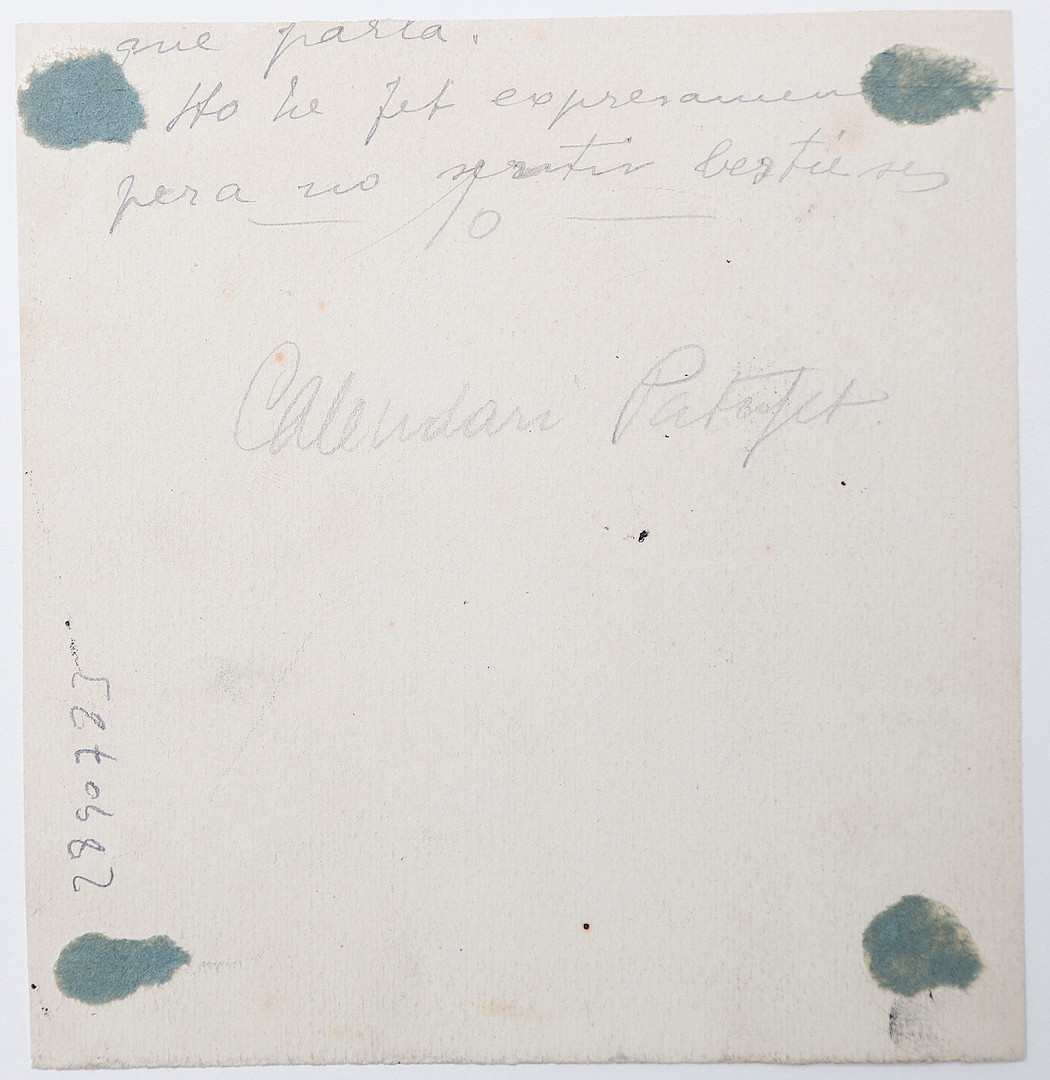 que parla.
Ho he fet expresamen
pera no sentir bestieses
Calendari Patufet.
2890783